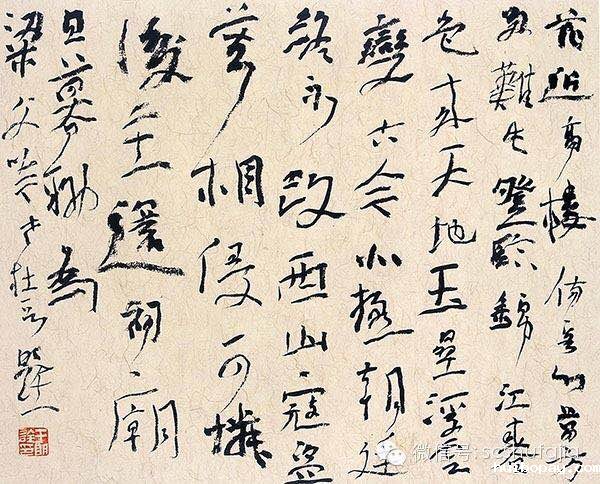 花近高樓傷客心萬方
多難此登臨錦江春
色來天地玉壘浮雲
變古今北極朝廷
終不改西山寇盜
莫相侵可憐
後主還祠廟
日暮聊為
梁父吟 杜
微信号: